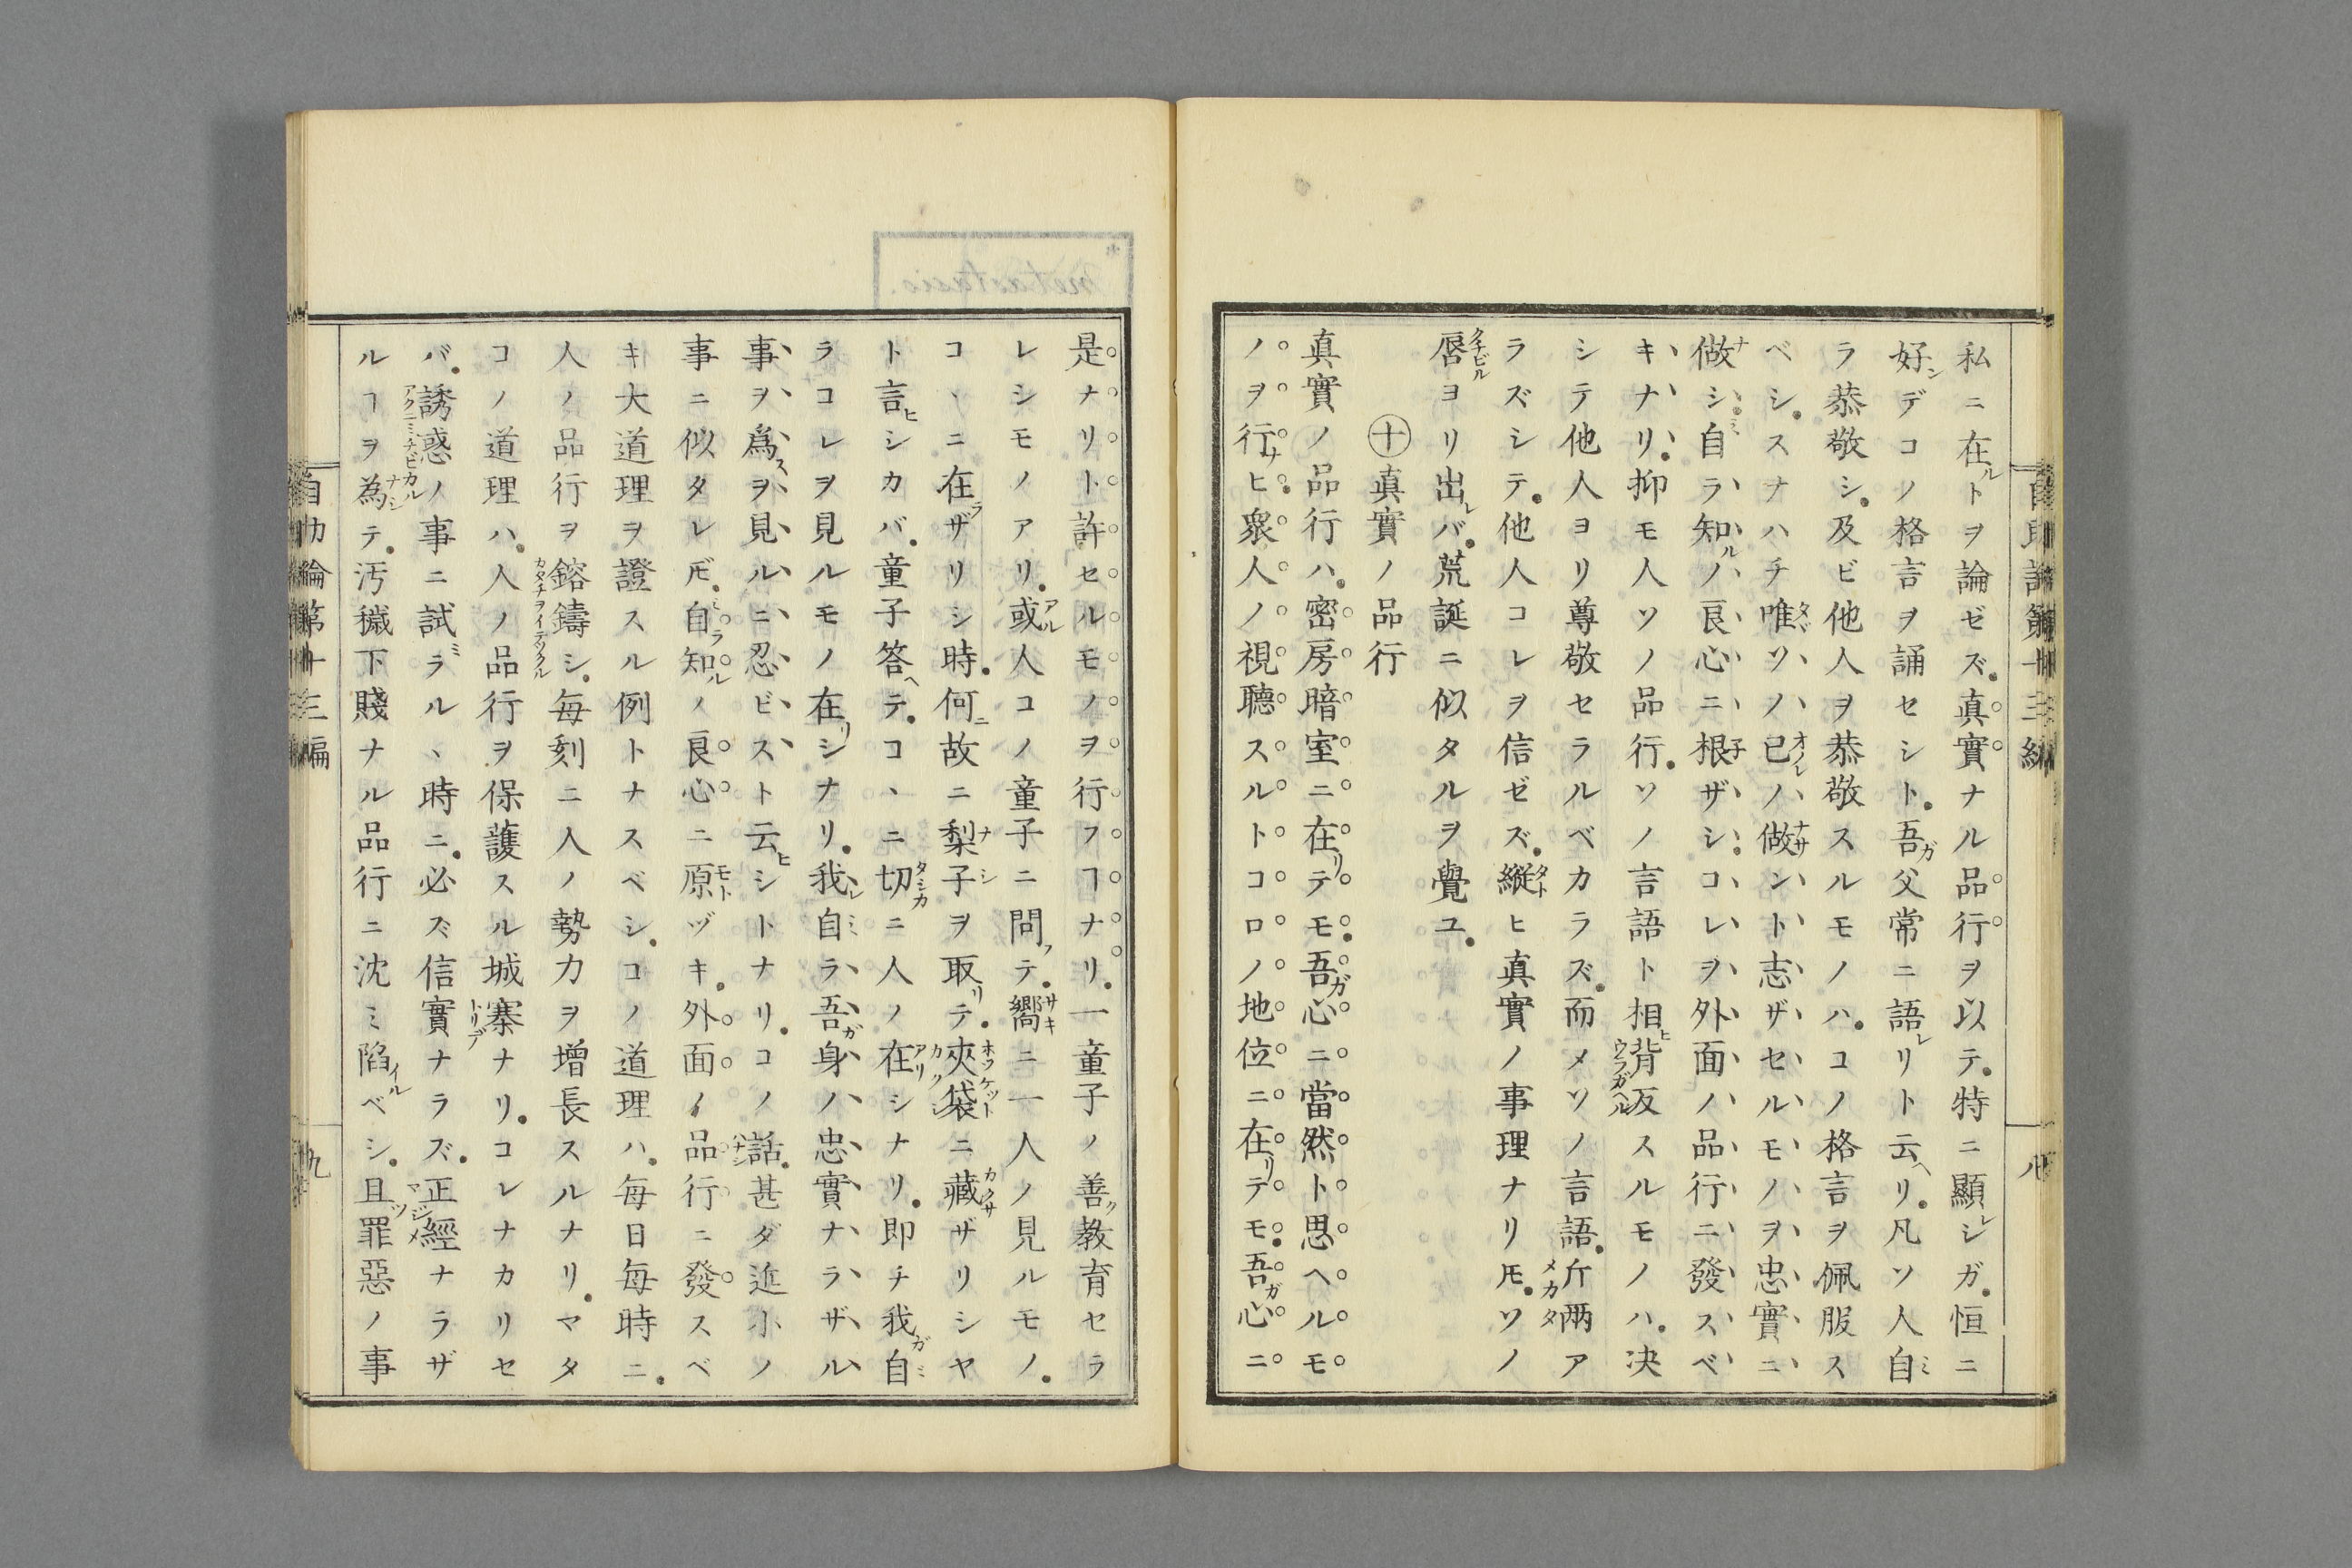 私ニ在ルトヲ論ゼズ。真實ナル品行ヲ以テ。特ニ顯レシガ。恒ニ
好ンデコノ格言ヲ誦セシト。吾ガ父常ニ語レリト云ヘリ。凡ソ人自ミ
ラ恭敬シ。及ビ他人ヲ恭敬スルモノハ。コノ格言ヲ佩服ス
ベシ。スナハチ唯タヾソノ已オノレノ做ナサント志ザセルモノヲ忠實ニ
做ナシ。自ミラ知ルノ良心ニ根子ザシ。コレヲ外面ノ品行ニ發スベ
キナリ。抑モ人ソノ品行。ソノ言語ト相ヒ背反ウラガヘルスルモノハ。决
シテ他人ヨリ尊敬セラルベカラズ。而メソノ言語。斤兩メカタア
ラズシテ。他人コレヲ信ゼズ。縱タトヒ真實ノ事理ナリ𪜈。ソノ
唇クチビルヨリ出レバ。荒誕ニ似タルヲ覺ユ。
㊉真實ノ品行
真實ノ品行ハ。密房暗室ニ在リテモ。吾ガ心ニ當然ト思ヘルモ
ノヲ行ナヒ。衆人ノ視聽スルトコロノ地位ニ在リテモ。吾ガ心ニ
自助論第十三編
八
是ナリト許セルモノヲ行フヿナリ。一童子ノ善ク教育セラ
レシモノアリ。或アル人コノ童子ニ問フテ。嚮サキニ一人ノ見ルモノ。
コヽニ在ラザリシ時。何ニ故ニ梨子ナシヲ取リテ。夾袋ホッケットカクシニ藏カクサザリシヤ
ト言ヒシカバ。童子答ヘテ。コヽニ切タシカニ人ノ在アリシナリ。即チ我ガ自ミ
ラコレヲ見ルモノ在リシナリ。我レ自ミラ吾ガ身ノ忠實ナラザル
事ヲ爲スヲ見ルニ忍ビズト云ヒシトナリ。コノ話ハナシ。甚ダ逬小ノ
事ニ似タレ𪜈。自ミラ知ルノ良心ニ原モトヅキ。外面ノ品行ニ發スベ
キ大道理ヲ證スル例トナスベシ。コノ道理ハ。毎日毎時ニ。
人ノ品行ヲ鎔鑄カタチヲイテツクルシ。毎刻ニ人ノ勢力ヲ增長スルナリ。マタ
コノ道理ハ。人ノ品行ヲ保護スル城寨トリデナリ。コレナカリセ
バ。誘惑アクニミチビカルノ事ニ試ミラルヽ時ニ。必ズ信實ナラズ。正經マジメナラザ
ルヿヲ為ナシテ。汚穢下賤ナル品行ニ沈ミ陷イルベシ。且ツ罪惡ノ事
自助論第十三編
九